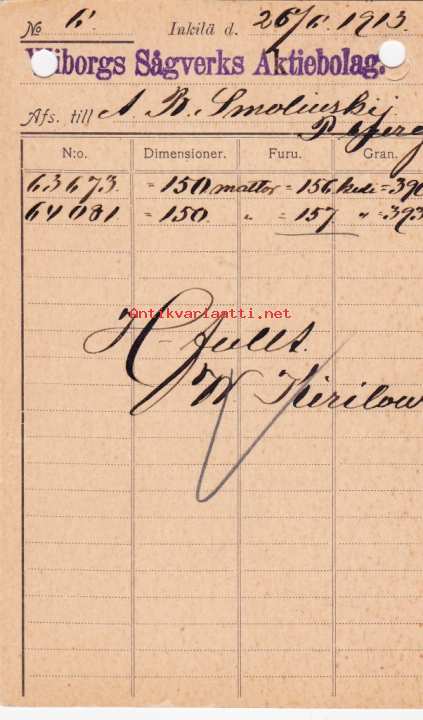 No 6. Inkilä d. 26/5. 1913.
Wiborgs Sågverks Aktiebolag.
Afs. till A. B. Smolinskij.
N:o. Dimensioner. Furu. Gran.
63673. = 150 mattor = 156 = 390
64081. = 150. " = 157. " = 393
Antikvariaatti.net
W Kirilow